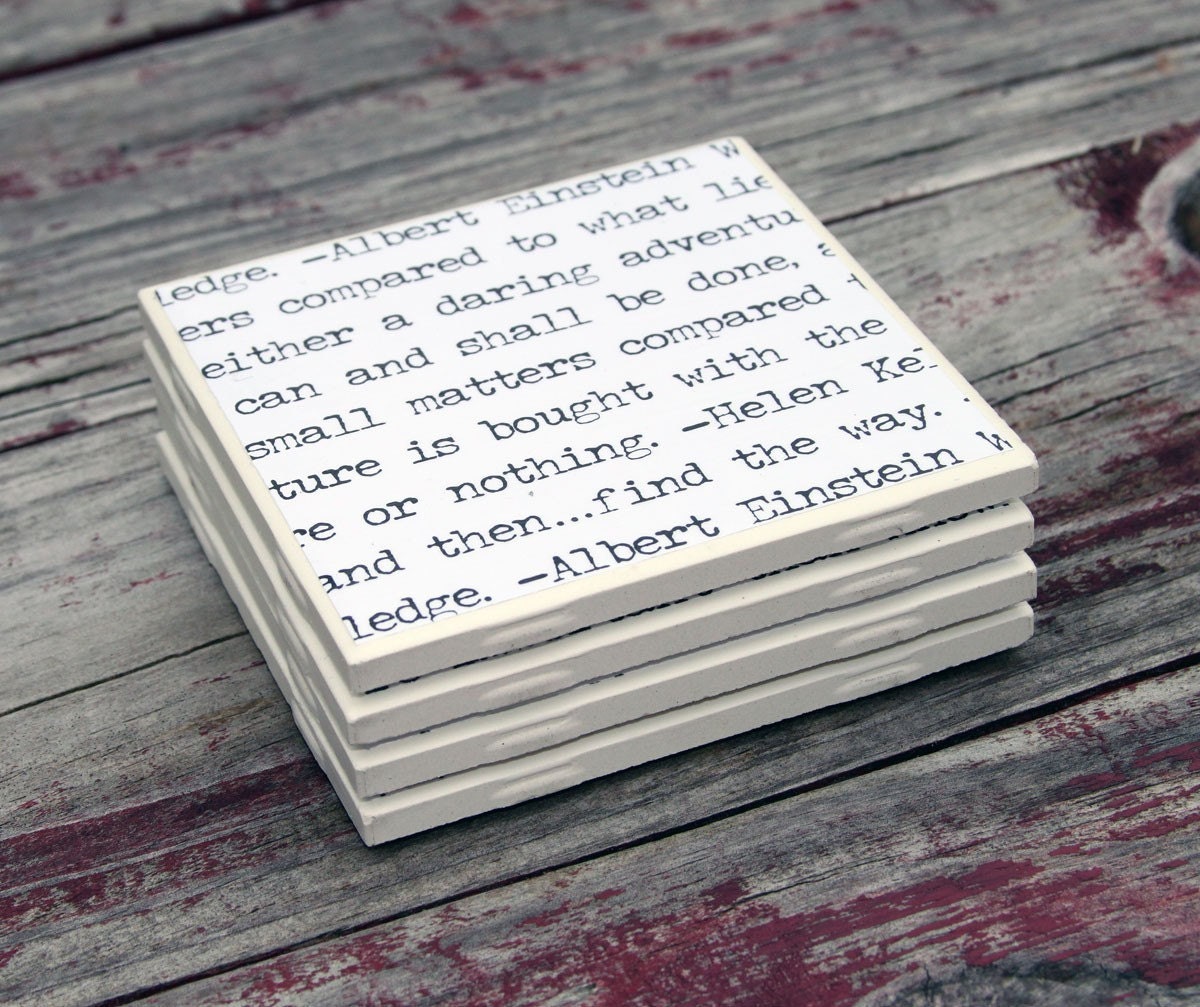 ledge. —Albert Einstein W
ers compared to what lie
either a daring adventu
can and shall be done, a
small matters compared t
ture is bought with the
re or nothing. —Helen Kel
and then...find the way.
ledge. —Albert Einstein W